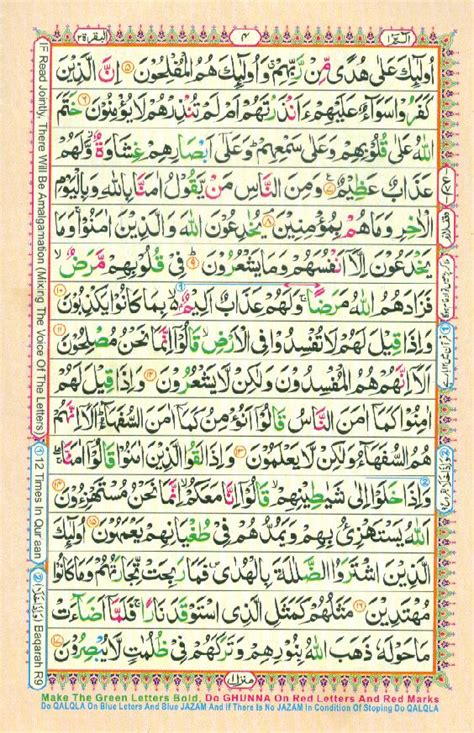 البقرة ٢
٤
الٓمّٓ ١
اُولٰٓئِكَ عَلٰى هُدًى مِّنْ رَّبِّهِمْ وَاُولٰٓئِكَ هُمُ الْمُفْلِحُوْنَ ۝٥ اِنَّ الَّذِيْنَ
كَفَرُوْا سَوَآءٌ عَلَيْهِمْ ءَاَنْذَرْتَهُمْ اَمْ لَمْ تُنْذِرْهُمْ لَا يُؤْمِنُوْنَ ۝٦ خَتَمَ
اللّٰهُ عَلٰى قُلُوْبِهِمْ وَعَلٰى سَمْعِهِمْ وَعَلٰٓى اَبْصَارِهِمْ غِشَاوَةٌ وَّلَهُمْ
عَذَابٌ عَظِيْمٌ ۝٧ وَمِنَ النَّاسِ مَنْ يَّقُوْلُ اٰمَنَّا بِاللّٰهِ وَبِالْيَوْمِ
الْاٰخِرِ وَمَا هُمْ بِمُؤْمِنِيْنَ ۝٨ يُخٰدِعُوْنَ اللّٰهَ وَالَّذِيْنَ اٰمَنُوْا وَمَا
يَخْدَعُوْنَ اِلَّآ اَنْفُسَهُمْ وَمَا يَشْعُرُوْنَ ۝٩ فِيْ قُلُوْبِهِمْ مَّرَضٌ
فَزَادَهُمُ اللّٰهُ مَرَضًا وَلَهُمْ عَذَابٌ اَلِيْمٌۢ بِمَا كَانُوْا يَكْذِبُوْنَ ۝١٠
وَاِذَا قِيْلَ لَهُمْ لَا تُفْسِدُوْا فِي الْاَرْضِ قَالُوْٓا اِنَّمَا نَحْنُ مُصْلِحُوْنَ ۝١١
اَلَآ اِنَّهُمْ هُمُ الْمُفْسِدُوْنَ وَلٰكِنْ لَّا يَشْعُرُوْنَ ۝١٢ وَاِذَا قِيْلَ لَهُمْ
اٰمِنُوْا كَمَآ اٰمَنَ النَّاسُ قَالُوْٓا اَنُؤْمِنُ كَمَآ اٰمَنَ السُّفَهَآءُ اَلَآ اِنَّهُمْ
هُمُ السُّفَهَآءُ وَلٰكِنْ لَّا يَعْلَمُوْنَ ۝١٣ وَاِذَا لَقُوا الَّذِيْنَ اٰمَنُوْا قَالُوْٓا اٰمَنَّا
وَاِذَا خَلَوْا اِلٰى شَيٰطِيْنِهِمْ قَالُوْٓا اِنَّا مَعَكُمْ اِنَّمَا نَحْنُ مُسْتَهْزِءُوْنَ ۝١٤
اَللّٰهُ يَسْتَهْزِئُ بِهِمْ وَيَمُدُّهُمْ فِيْ طُغْيَانِهِمْ يَعْمَهُوْنَ ۝١٥ اُولٰٓئِكَ
الَّذِيْنَ اشْتَرَوُا الضَّلٰلَةَ بِالْهُدٰى فَمَا رَبِحَتْ تِّجَارَتُهُمْ وَمَا كَانُوْا
مُهْتَدِيْنَ ۝١٦ مَثَلُهُمْ كَمَثَلِ الَّذِي اسْتَوْقَدَ نَارًا فَلَمَّآ اَضَآءَتْ
مَا حَوْلَهٗ ذَهَبَ اللّٰهُ بِنُوْرِهِمْ وَتَرَكَهُمْ فِيْ ظُلُمٰتٍ لَّا يُبْصِرُوْنَ ۝١٧
منزل ١
IF Read Jointly, There Will Be Amalgamation (Mixing The Voice Of The Letters) ① 12 Times In Qur'aan ② Baqarah R9
Make The Green Letters Bold, Do GHUNNA On Red Letters And Red Marks
Do QALQLA On Blue Letters And Blue JAZAM And If There Is No JAZAM In Condition Of Stoping Do QALQLA